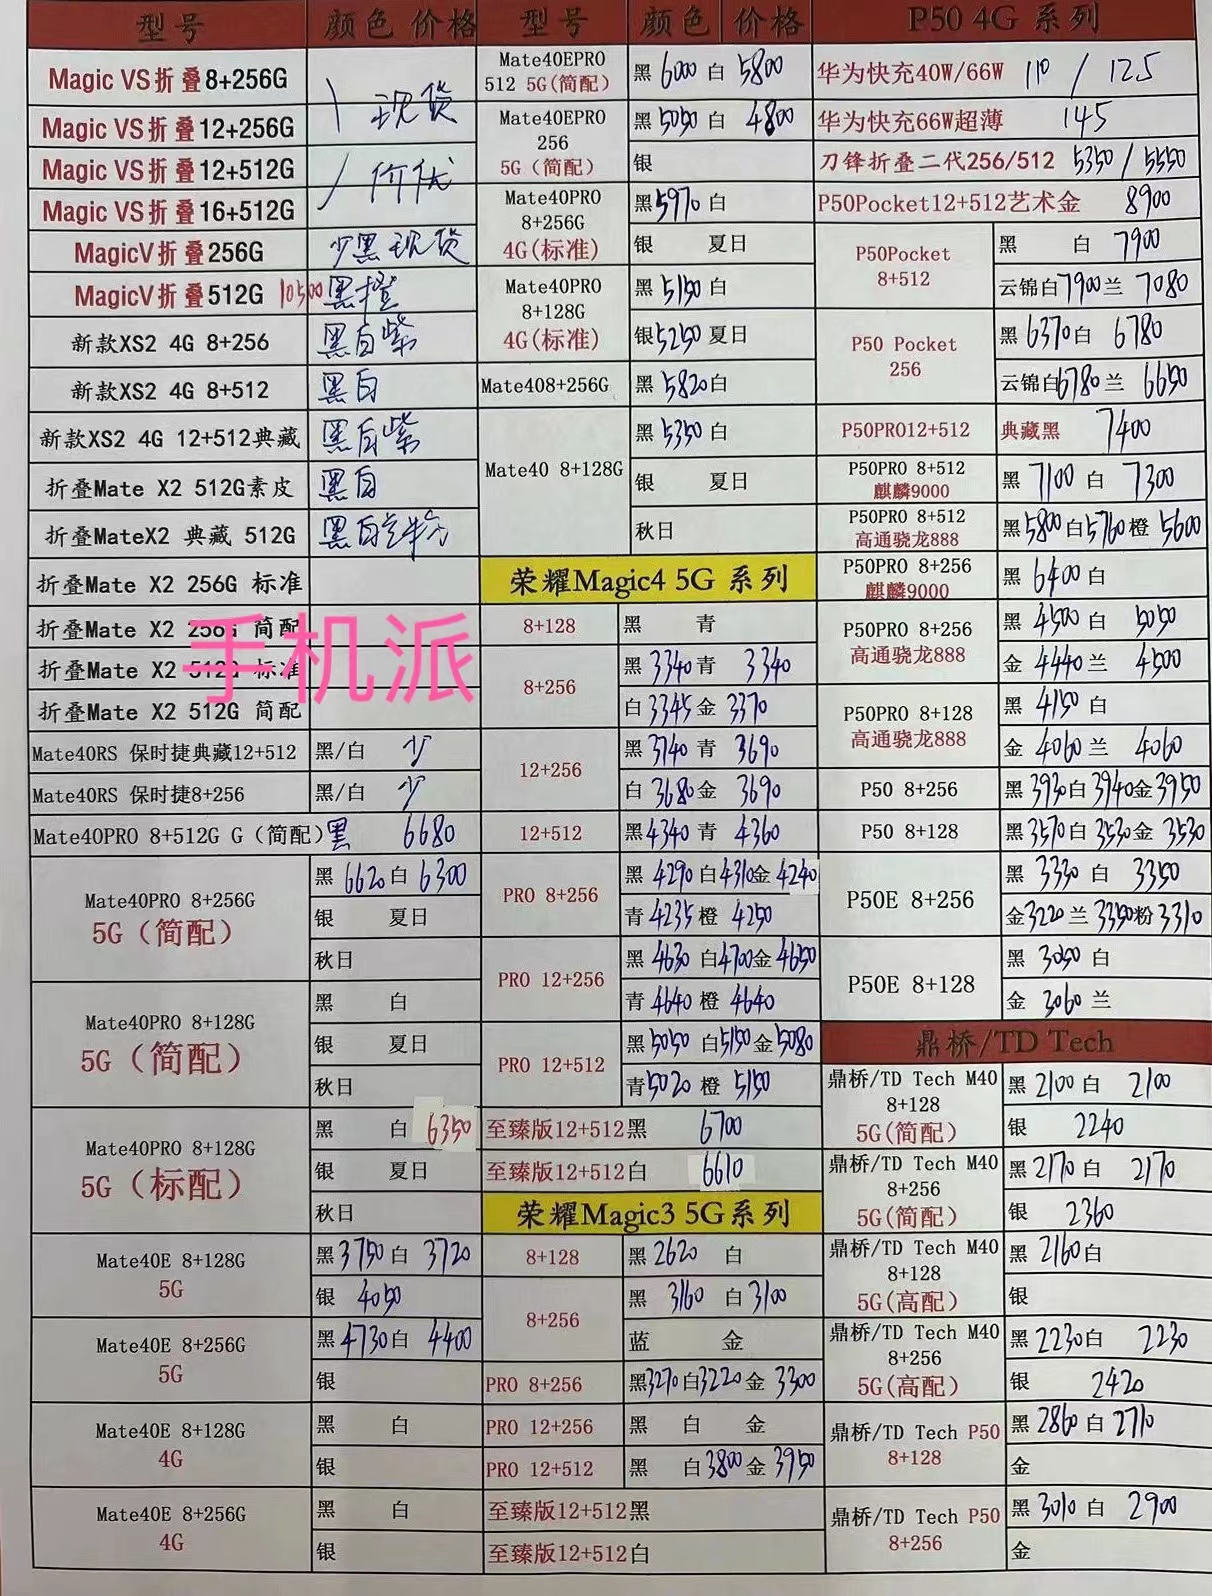 型号 颜色 价格
Magic VS折叠8+256G
Magic VS折叠12+256G 现货
Magic VS折叠12+512G 价优
Magic VS折叠16+512G
MagicV折叠256G 少黑现货
MagicV折叠512G 10500 黑橙
新款XS2 4G 8+256 黑白紫
新款XS2 4G 8+512 黑白
新款XS2 4G 12+512典藏 黑白紫
折叠Mate X2 512G素皮 黑白
折叠MateX2 典藏 512G 黑白
折叠Mate X2 256G 标准
折叠Mate X2 256G 简配
折叠Mate X2 512G 标准
折叠Mate X2 512G 简配
手机派
Mate40RS 保时捷典藏12+512 黑/白 少
Mate40RS 保时捷8+256 黑/白 少
Mate40PRO 8+512G G（简配）黑 6680
Mate40PRO 8+256G
5G（简配）
黑 6620 白 6300
银 夏日
秋日
Mate40PRO 8+128G
5G（简配）
黑 白
银 夏日
秋日
Mate40PRO 8+128G
5G（标配）
黑 白 6350
银 夏日
秋日
Mate40E 8+128G
5G
黑 3750 白 3720
银 4050
Mate40E 8+256G
5G
黑 4730 白 4400
银
Mate40E 8+128G
4G
黑 白
银
Mate40E 8+256G
4G
黑 白
银
型号 颜色 价格
Mate40EPRO
512 5G(简配)
黑 6000 白 5800
Mate40EPRO
256
5G（简配）
黑 5050 白 4800
银
Mate40PRO
8+256G
4G(标准)
黑 5970 白
银 夏日
Mate40PRO
8+128G
4G(标准)
黑 5150 白
银 5250 夏日
Mate408+256G 黑 5820 白
Mate40 8+128G
黑 5350 白
银 夏日
秋日
荣耀Magic4 5G 系列
8+128 黑 青
8+256
黑 3340 青 3340
白 3345 金 3370
12+256
黑 3740 青 3690
白 3680 金 3690
12+512 黑 4340 青 4360
PRO 8+256
黑 4290 白 4310 金 4240
青 4235 橙 4250
PRO 12+256
黑 4630 白 4700 金 4650
青 4640 橙 4640
PRO 12+512
黑 5050 白 5150 金 5080
青 5020 橙 5150
至臻版12+512黑 6700
至臻版12+512白 6610
荣耀Magic3 5G系列
8+128 黑 2620 白
8+256
黑 3160 白 3100
蓝 金
PRO 8+256 黑 3270 白 3220 金 3300
PRO 12+256 黑 白 金
PRO 12+512 黑 白 3800 金 3950
至臻版12+512黑
至臻版12+512白
P50 4G 系列
华为快充40W/66W 110 / 125
华为快充66W超薄 145
刀锋折叠二代256/512 5350 / 5550
P50Pocket12+512艺术金 8900
P50Pocket
8+512
黑 白 7900
云锦白 7900 兰 7080
P50 Pocket
256
黑 6370 白 6780
云锦白 6780 兰 6650
P50PRO12+512 典藏黑 7400
P50PRO 8+512
麒麟9000
黑 7100 白 7300
P50PRO 8+512
高通骁龙888
黑 5800 白 5760 橙 5600
P50PRO 8+256
麒麟9000
黑 6400 白
P50PRO 8+256
高通骁龙888
黑 4500 白 5050
金 4440 兰 4500
P50PRO 8+128
高通骁龙888
黑 4150 白
金 4060 兰 4060
P50 8+256 黑 3930 白 3940 金 3950
P50 8+128 黑 3570 白 3530 金 3530
P50E 8+256
黑 3330 白 3350
金 3220 兰 3350 粉 3310
P50E 8+128
黑 3050 白
金 3060 兰
鼎桥/TD Tech
鼎桥/TD Tech M40
8+128
5G(简配)
黑 2100 白 2100
银 2240
鼎桥/TD Tech M40
8+256
5G(简配)
黑 2170 白 2170
银 2360
鼎桥/TD Tech M40
8+128
5G(高配)
黑 2160 白
银
鼎桥/TD Tech M40
8+256
5G(高配)
黑 2230 白 2230
银 2420
鼎桥/TD Tech P50
8+128
黑 2860 白 2710
金
鼎桥/TD Tech P50
8+256
黑 3010 白 2900
金